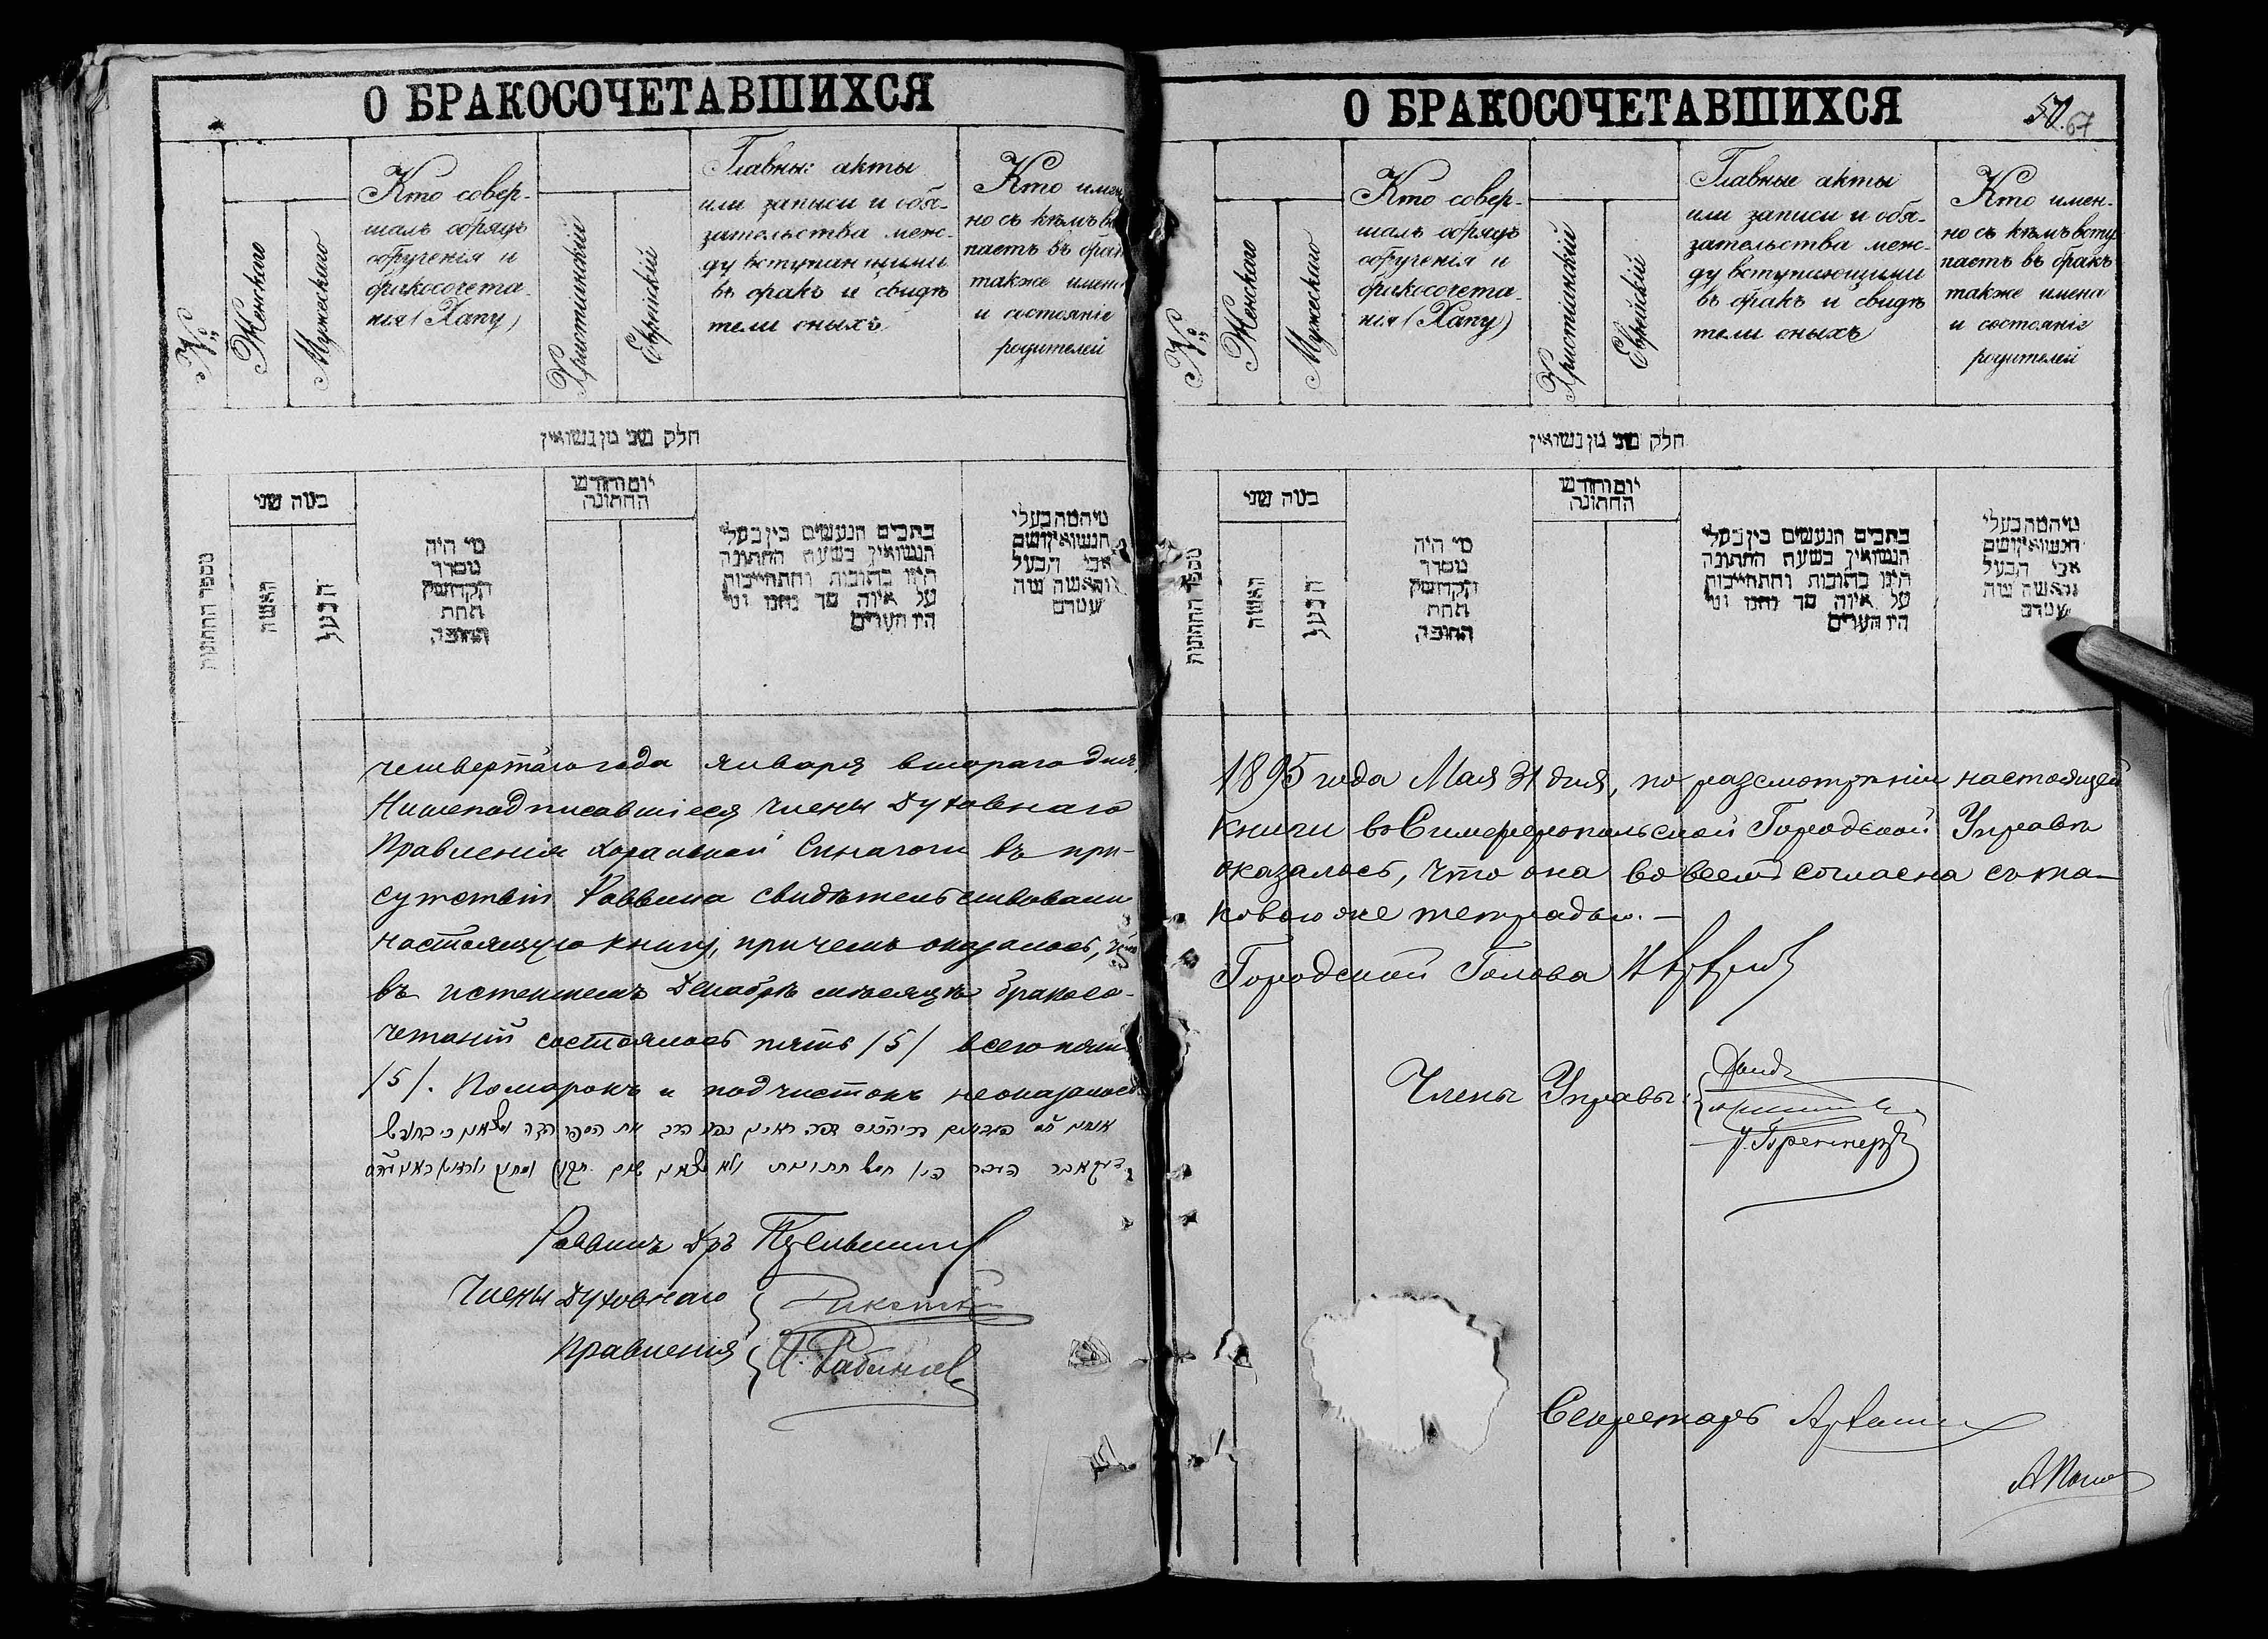 О БРАКОСОЧЕТАВШИХСЯ
№
Женскаго
Мужескаго
Кто совер-
шалъ обрядъ
обрученія и
бракосочета-
нія (Хапу)
Христіанскій
Еврейскій
Главны: акты
или записи и обя-
зательства меж-
ду вступающими
въ бракъ и свидѣ
тели оныхъ
Кто имен
но съ кѣмъ вс
паетъ въ брак
также имен
и состояніе
родителей
חלק שני מן נשואין
מספר החתונות
כמה שני
האשה
הבעל
מי היה
מסדר
הקדושין
תחת
החופה
יום וחודש
החתונה
כתבים הנעשים בין בעלי
הנשואין בשעת החתונה
היינו כתובות והתחייבות
על איזה סך נתנו ומי
היו העדים
מיהמה בעלי
הנשואין ושם
אבי הבעל
והאשה
четвертаго года января втораго дня.
Нижеподписавшіеся члены Духовнаго
Правленія Хоральной Синагоги въ при-
сутствіи Раввина свидѣтельствовали
настоящую книгу, при чемъ оказалось, что
въ истекшемъ Декабрѣ мѣсяцѣ бракосо-
четаній состоялось пять /5/ всего пять
/5/. Помарокъ и подчистокъ неоказалось
Раввинъ Дръ
Члены Духовнаго
Правленія
Рабинов
О БРАКОСОЧЕТАВШИХСЯ
57. 67
№
Женскаго
Мужескаго
Кто совер-
шалъ обрядъ
обрученія и
бракосочета-
нія (Хапу)
Христіанскій
Еврейскій
Главные акты
или записи и обя-
зательства меж-
ду вступающими
въ бракъ и свидѣ
тели оныхъ
Кто имен-
но съ кѣмъ всту
паетъ въ бракъ
также имена
и состояніе
родителей
חלק שני מן נשואין
מספר החתונות
כמה שני
האשה
הבעל
מי היה
מסדר
הקדושין
תחת
החופה
יום וחודש
החתונה
כתבים הנעשים בין בעלי
הנשואין בשעת החתונה
היינו כתובות והתחייבות
על איזה סך נתנו ומי
היו העדים
מיהמה בעלי
הנשואין ושם
אבי הבעל
והאשה
1895 года Мая 31 дня, по разсмотрѣніи настоящей
книги въ Симферопольской Городской Управѣ
оказалось, что она во всемъ согласна съ та-
ковою же тетрадью.—
Городской Голова
Члены Управы:
Секретарь